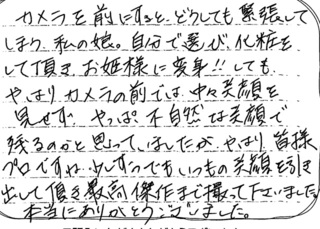 カメラを前にすると、どうしても緊張して
しまう私の娘。自分で選び、化粧を
して頂き、お姫様に変身!!しても
やはりカメラの前では、中々笑顔を
見せず、やっぱ不自然な笑顔で
残るのかと思っていましたが、やはり皆様
プロですね 少しずつでもいつもの笑顔を引き
出して頂き最高傑作まで撮って下さいました。
本当にありがとうございました。